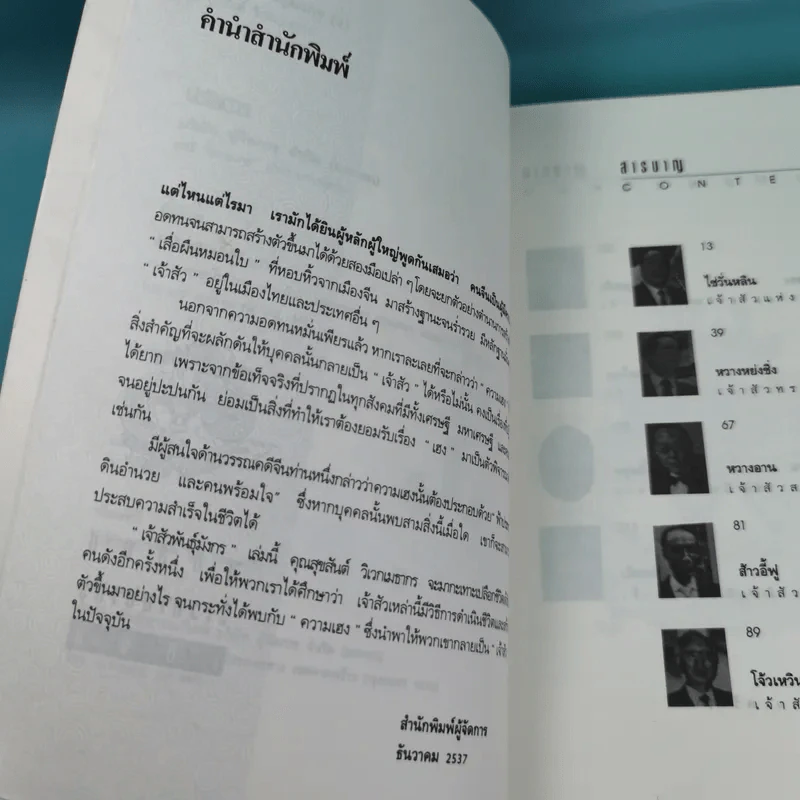 คำนำสำนักพิมพ์
แต่ไหนแต่ไรมา เรามักได้ยินผู้หลักผู้ใหญ่พูดกันเสมอว่า คนจีนเป็นผู้
อดทนจนสามารถสร้างตัวขึ้นมาได้ด้วยสองมือเปล่า ๆ โดยจะยกตัวอย่างตำนาน
" เสื่อผืนหมอนใบ " ที่หอบหิ้วจากเมืองจีน มาสร้างฐานะจนร่ำรวย มีหลักฐาน
" เจ้าสัว " อยู่ในเมืองไทยและประเทศอื่น ๆ
นอกจากความอดทนหมั่นเพียรแล้ว หากเราละเลยที่จะกล่าวว่า " ความเฮง "
สิ่งสำคัญที่จะผลักดันให้บุคคลนั้นกลายเป็น " เจ้าสัว " ได้หรือไม่นั้น คงเป็นเรื่อง
ได้ยาก เพราะจากข้อเท็จจริงที่ปรากฏในทุกสังคมที่มีทั้งเศรษฐี มหาเศรษฐี และ
จนอยู่ปะปนกัน ย่อมเป็นสิ่งที่ทำให้เราต้องยอมรับเรื่อง " เฮง " มาเป็นตัวพิจารณา
เช่นกัน
มีผู้สนใจด้านวรรณคดีจีนท่านหนึ่งกล่าวว่าความเฮงนั้นต้องประกอบด้วย "
ดินอำนวย และคนพร้อมใจ" ซึ่งหากบุคคลนั้นพบสามสิ่งนี้เมื่อใด เขาก็จะ
ประสบความสำเร็จในชีวิตได้
" เจ้าสัวพันธุ์มังกร " เล่มนี้ คุณสุขสันต์ วิเวกเมธากร จะมากะเทาะเปลือกชีวิต
คนดังอีกครั้งหนึ่ง เพื่อให้พวกเราได้ศึกษาว่า เจ้าสัวเหล่านี้มีวิธีการดำเนินชีวิตและ
ตัวขึ้นมาอย่างไร จนกระทั่งได้พบกับ " ความเฮง " ซึ่งนำพาให้พวกเขากลายเป็น " เจ้าสัว
ในปัจจุบัน
สำนักพิมพ์ผู้จัดการ
ธันวาคม 2537
สารบาญ
CONTE
13
ไช่วั่นหลิน
เจ้าสัวแห่ง
39
หวางหย่งชิ่ง
เจ้าสัวทร
67
หวางอาน
เจ้าสัวส
81
ส้าวอี้ฟู
เจ้าสัว
89
โจ้วเหวิน
เจ้าสั